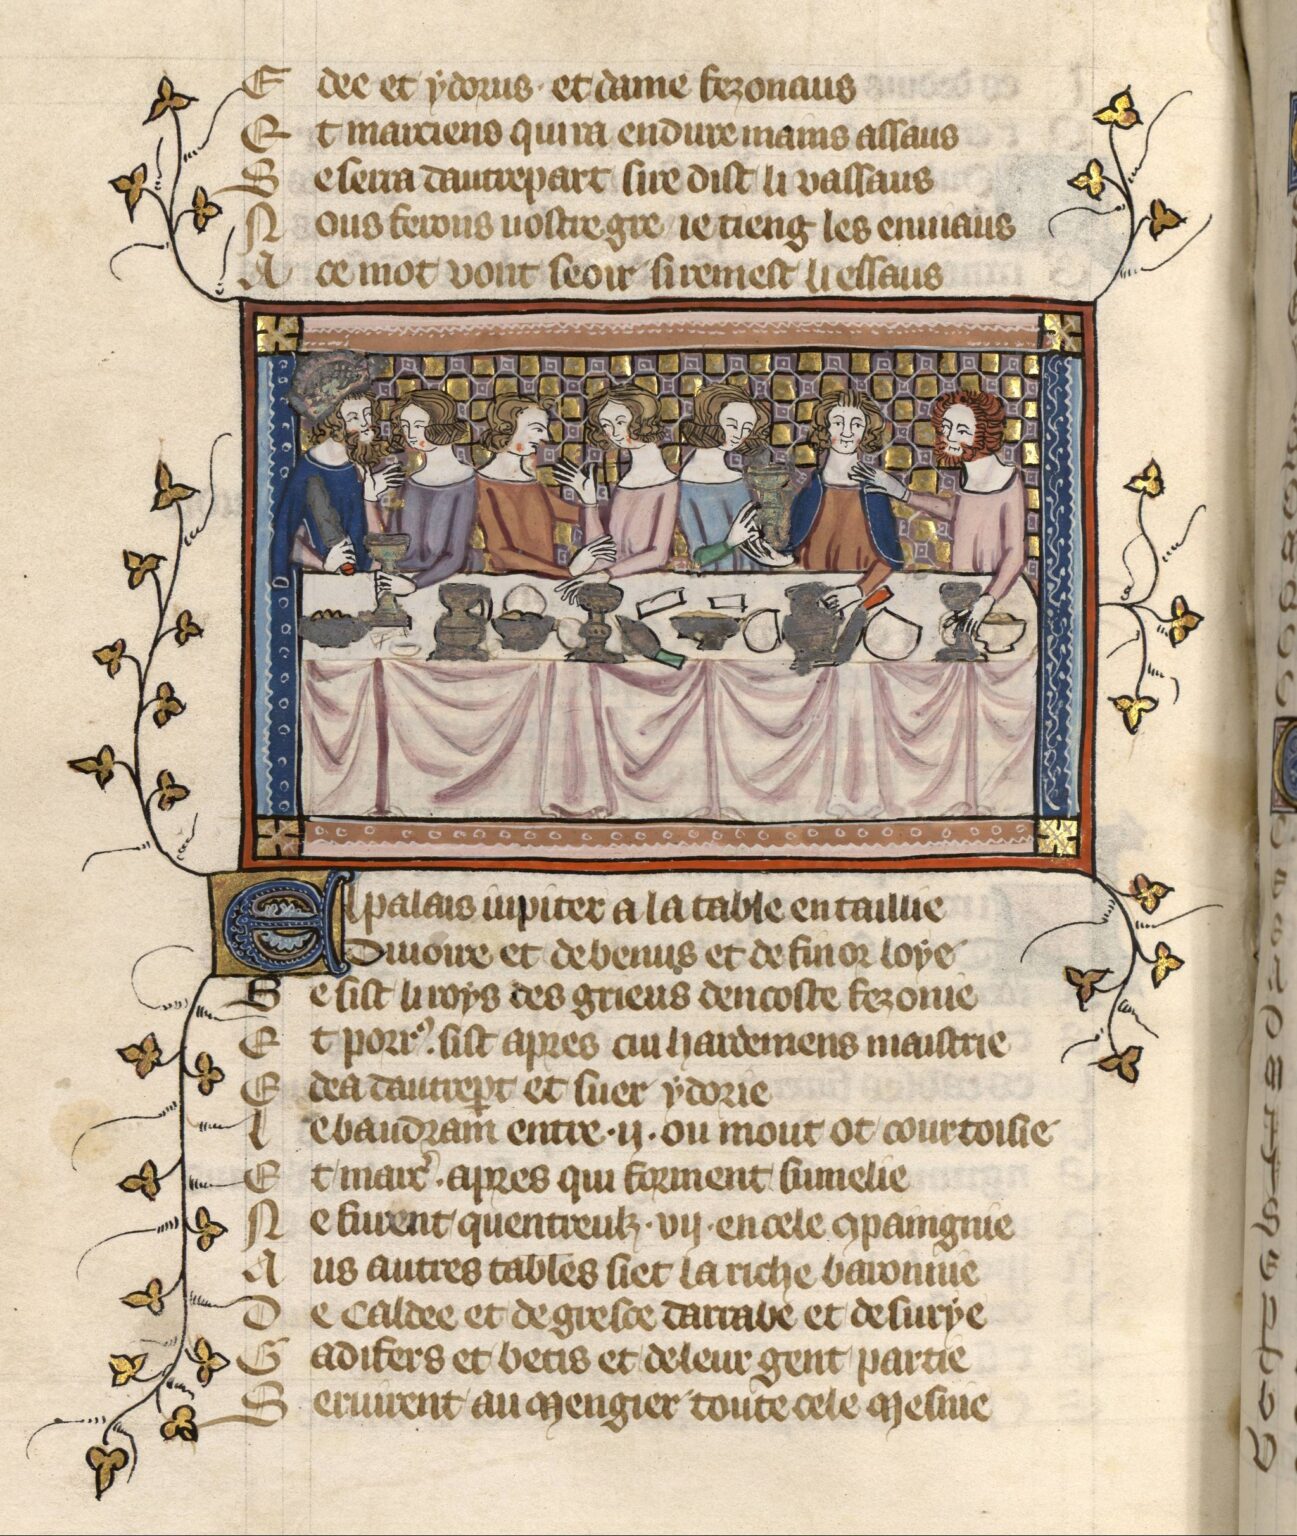 E dee et ydorus · et dame fezonaus
E t marciens qui ra endure mains assaus
S e serra dautrepart sire dist li vassaus
N ous ferons vostre gre ie tieng les enviaus
A ce mot vont seoir si remest li essaus
El palais iupiter a la table entaillie
D ivoire et debenus et de fin or loye
S e sist li roys des grieus dencoste fezonie
E t porr᾽. sist apres cui hardemens maistrie
E dea dautrep̱t et suer ydorie
L e baudrain entre · ij · ou mout ot courtoisie
E t marc᾽. apres qui forment sumelie
N e furent quentreulz · vij · en cele ɔpaingnie
A us autres tables siet la riche baronnie
D e Caldee et de gresce darrabe et de surye
G adifers et betis et de leur gent partie
S ervirent au Mengier toute cele Mesnie